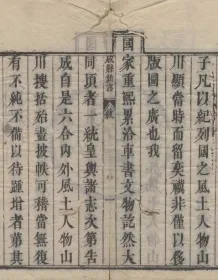 子凡以紀列國之風土人物山
川顯當時而留奕禩非僅以侈
版圖之廣也我
國家重熙累洽車書文物訖然大
同頃者一統皇輿諸志次第告
成自是六合內外風土人物山
川搜括殆盡披帙可稽當無復
有不純不備以待踵增者第其